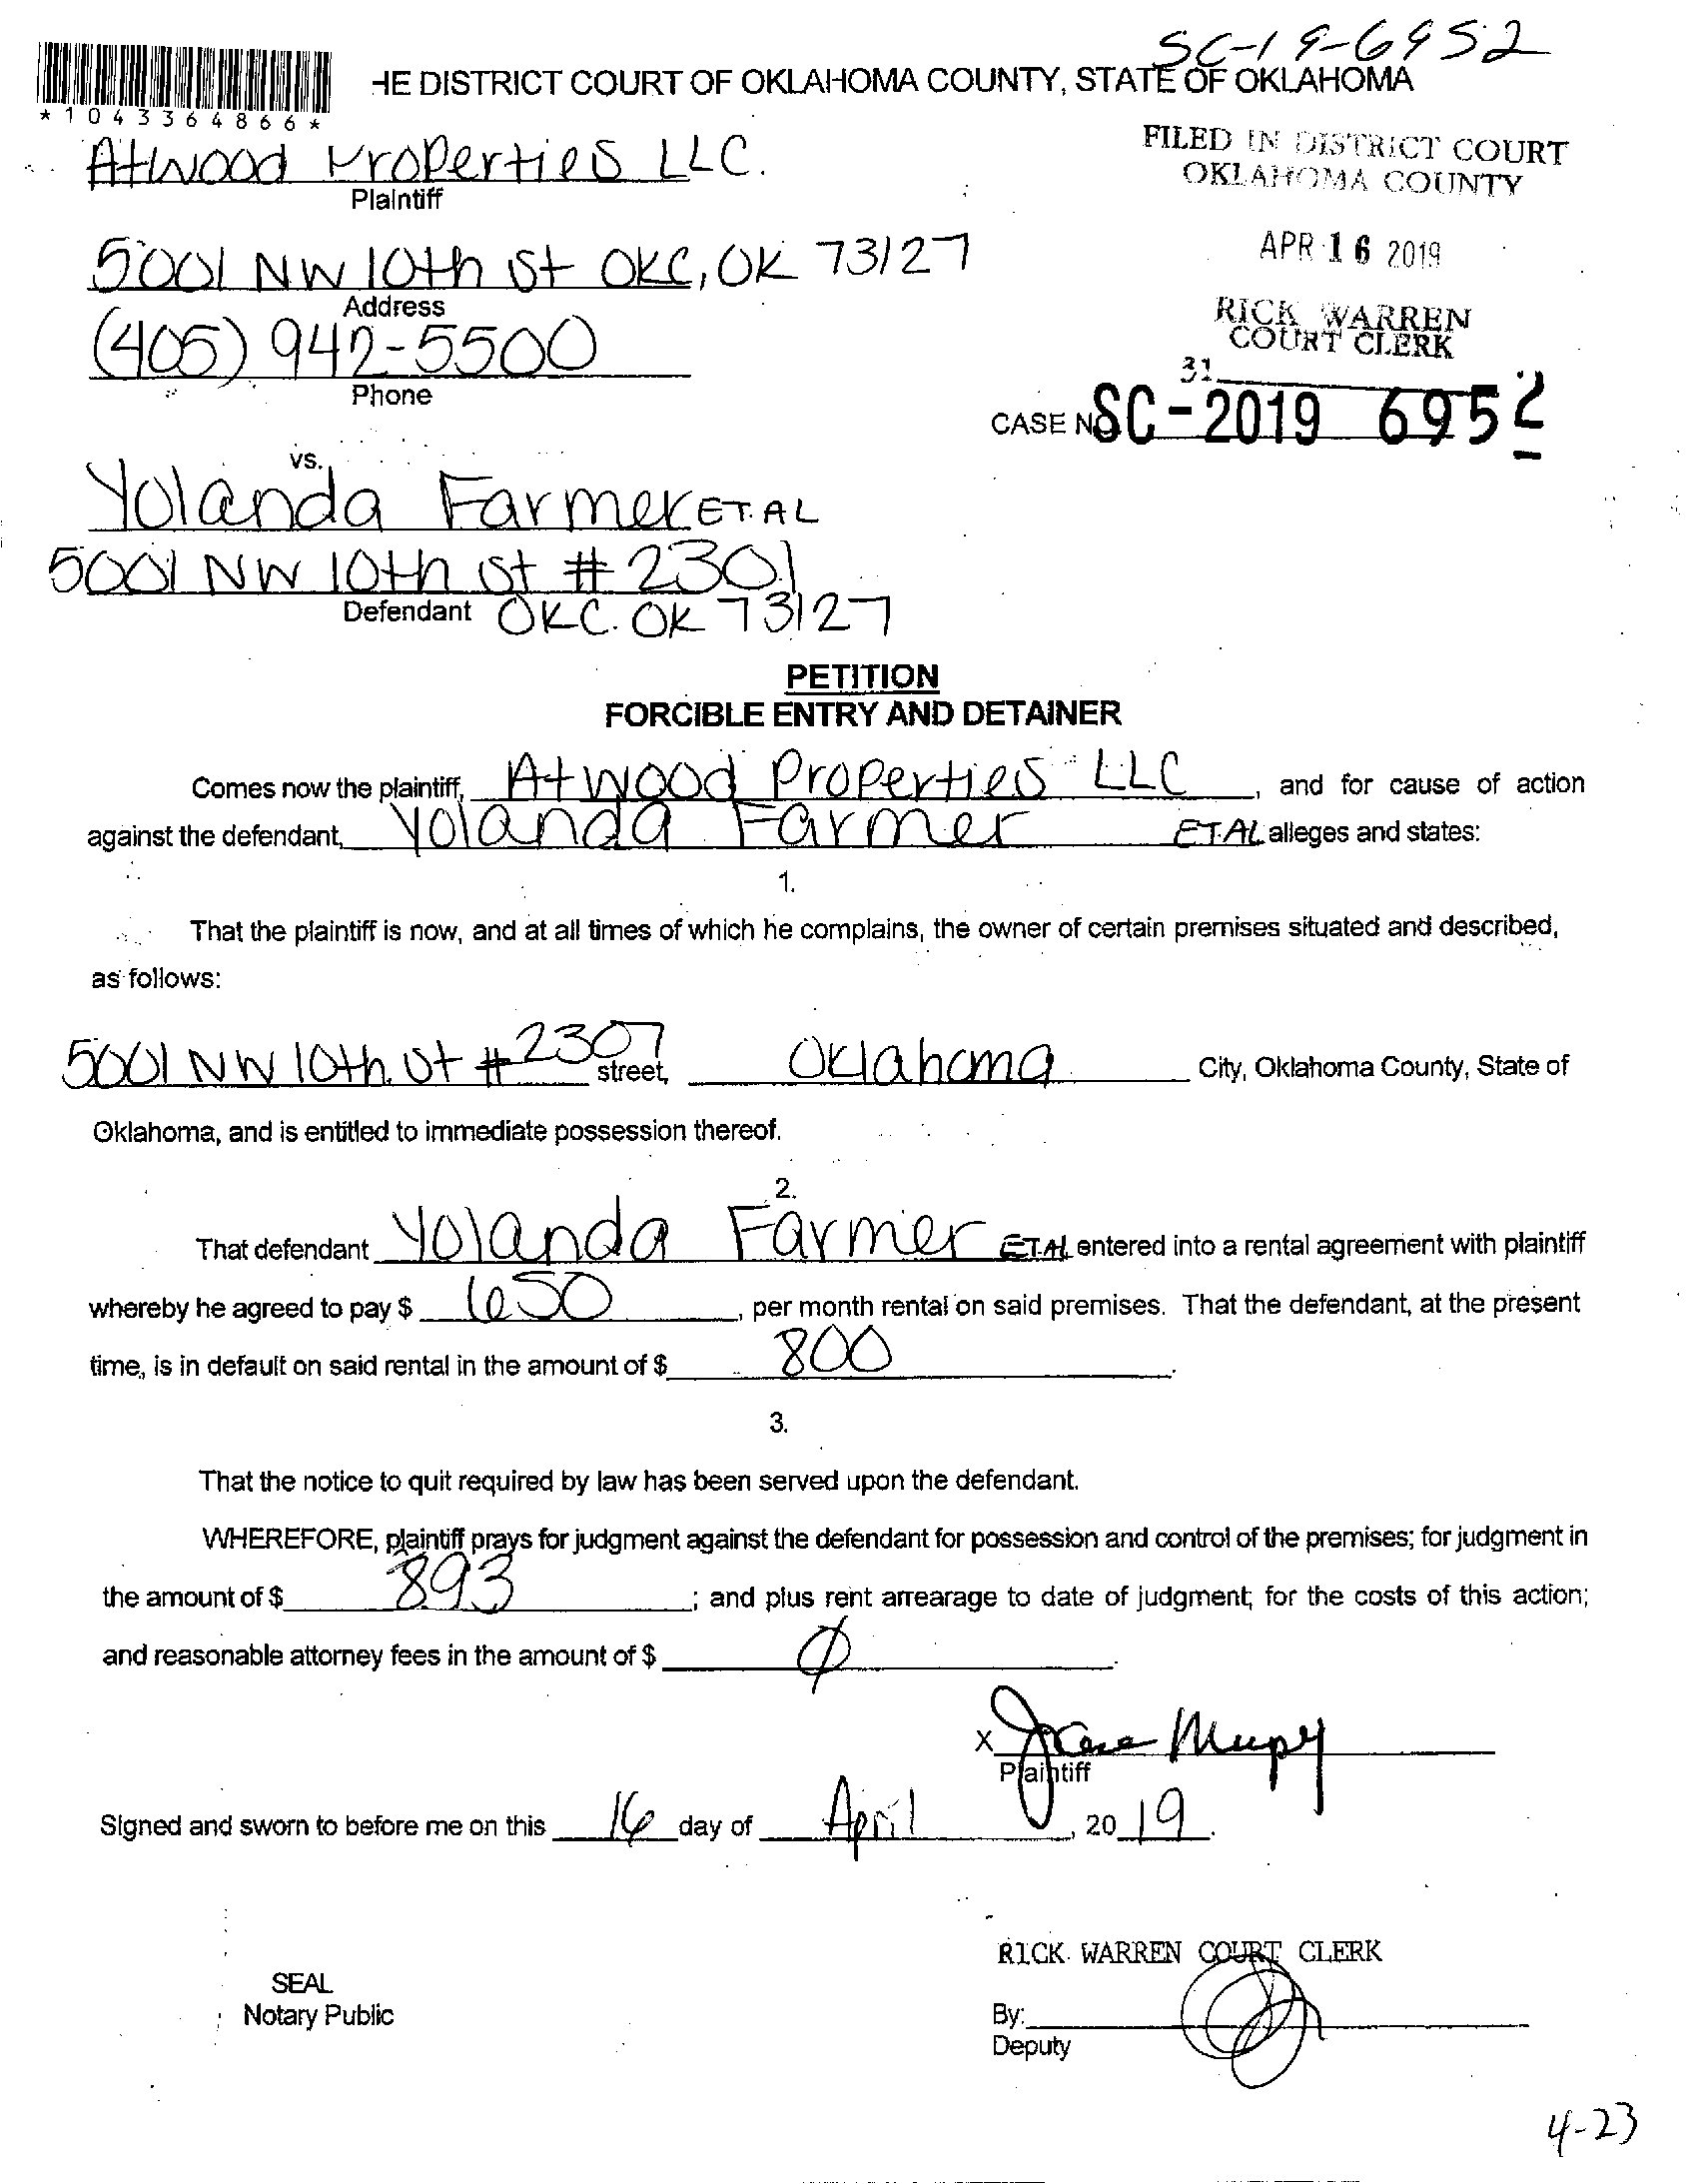 SC-19-6952
HE DISTRICT COURT OF OKLAHOMA COUNTY, STATE OF OKLAHOMA
*1043364866*
Atwood Properties LLC.
Plaintiff
FILED IN DISTRICT COURT
OKLAHOMA COUNTY
5001 NW 10th St OKC, OK 73127
Address
APR 16 2019
(405) 942-5500
Phone
RICK WARREN
COURT CLERK
31
CASE NO. SC-2019 6952
vs.
Yolanda Farmer ET. AL
5001 NW 10th St # 2301
Defendant OKC. OK 73127
PETITION
FORCIBLE ENTRY AND DETAINER
Comes now the plaintiff, Atwood Properties LLC, and for cause of action
against the defendant, Yolanda Farmer ET.AL alleges and states:
1.
That the plaintiff is now, and at all times of which he complains, the owner of certain premises situated and described,
as follows:
5001 NW 10th St # 2307 street, Oklahoma City, Oklahoma County, State of
Oklahoma, and is entitled to immediate possession thereof.
2.
That defendant Yolanda Farmer ET.AL entered into a rental agreement with plaintiff
whereby he agreed to pay $ 650, per month rental on said premises. That the defendant, at the present
time, is in default on said rental in the amount of $ 800.
3.
That the notice to quit required by law has been served upon the defendant.
WHEREFORE, plaintiff prays for judgment against the defendant for possession and control of the premises; for judgment in
the amount of $ 893; and plus rent arrearage to date of judgment; for the costs of this action;
and reasonable attorney fees in the amount of $ Ø.
X
Plaintiff
Signed and sworn to before me on this 16 day of April, 2019.
RICK WARREN COURT CLERK
SEAL
Notary Public
By:
Deputy
4-23